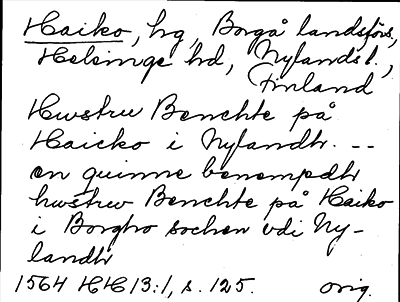 Haiko, hg, Borgå landsförs.,
Helsinge hd, Nylands l.,
Finland
Hwstrw Benchte på
Haicko i Nylandh. --
en quinne benempdh
hwstrw Benchte på Haiko
i Borgho sochen vdi Ny-
landh
1564 HH 13:1, s. 125. orig.